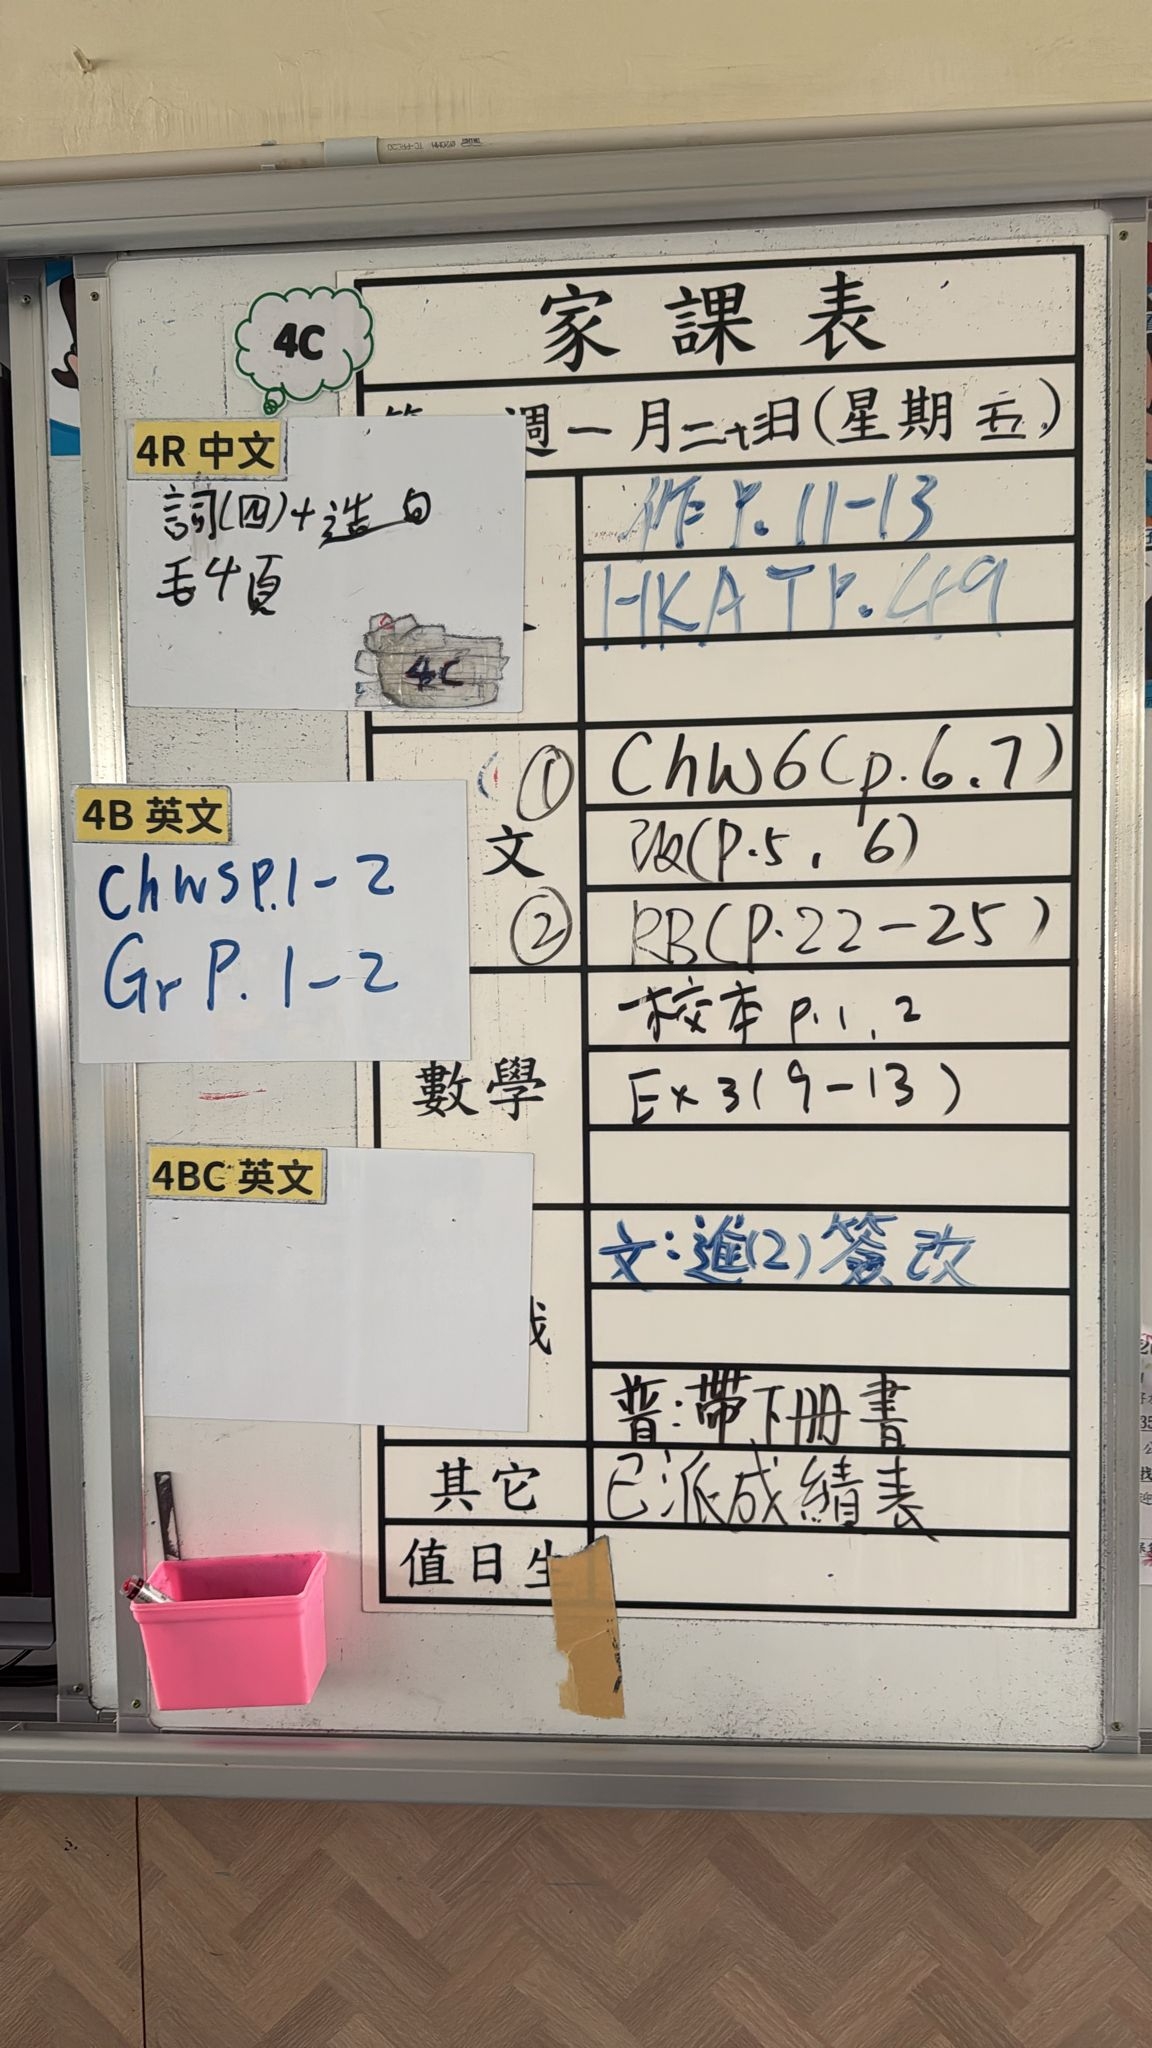 4C
家課表
週一月二十三日(星期五)
4R 中文
詞(四)+造句
毛4頁
4C
作P.11-13
HKAT P.49
4B 英文
ChW5P.1-2
Gr P.1-2
文
① ChW6(p.6.7)
改(P.5, 6)
② RB(P.22-25)
數學
校本 p.1, 2
Ex 3(9-13)
4BC 英文
文:進(2)簽改
普:帶下冊書
其它 已派成績表
值日生